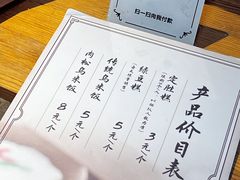 扫一扫向我付款
产品价目表
定胜糕
3元/个
绿豆糕
5元/个
传统乌米饭
5元/个
肉松乌米饭
8元/个